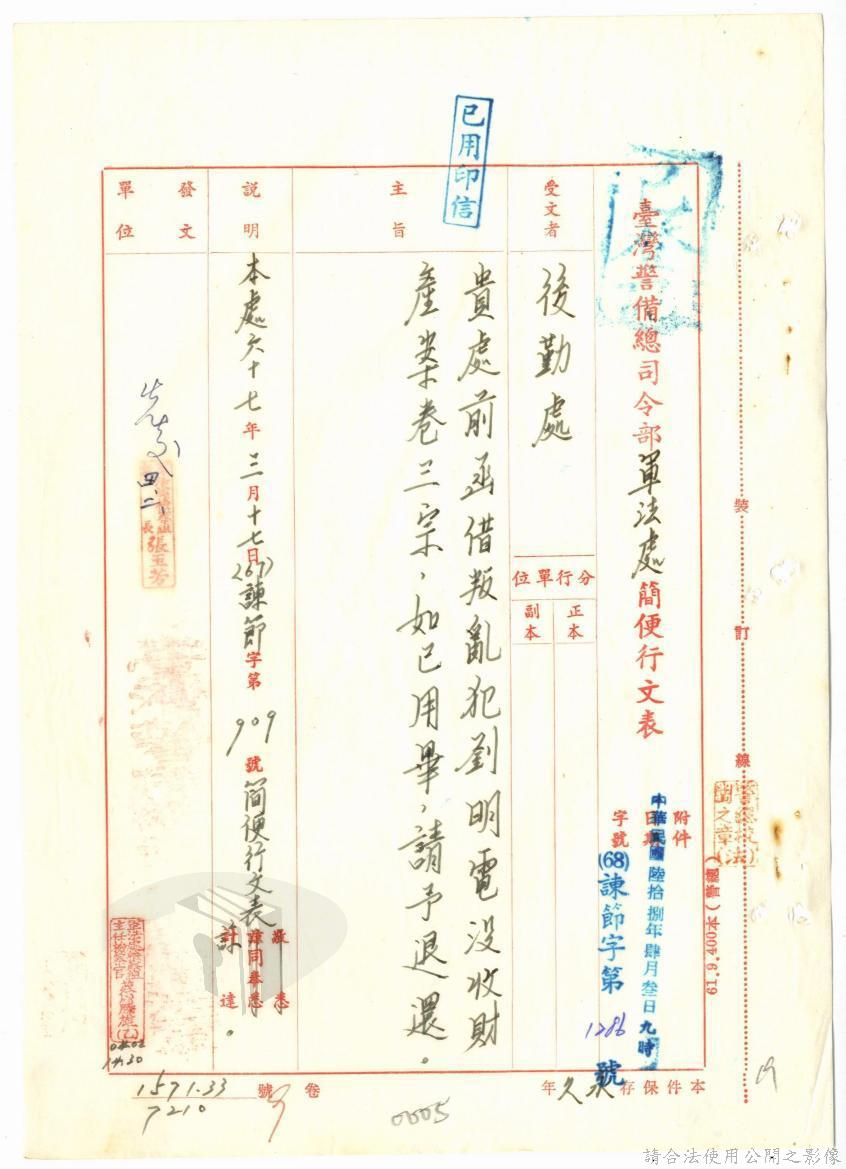 已用印信
臺灣警備總司令部軍法處簡便行文表
附件
日期
字號
中華民國陸拾捌年肆月叁日九時
(68)諫節字第1286號
受文者
後勤處
分行單位
正本
副本
主旨
貴處前函借叛亂犯劉明電沒收財
產案卷三宗,如已用畢,請予退還。
說明
本處六十七年三月十七日(67)諫節字第909號簡便行文表諒達。
敬悉
計達
發文
單位
四.二
長張玉芳
主任檢察官
0402
1430
本件保存永久年
卷號
1571.33
7210
0005
裝訂線
61.9.400本(普總)
19
請合法使用公開之影像